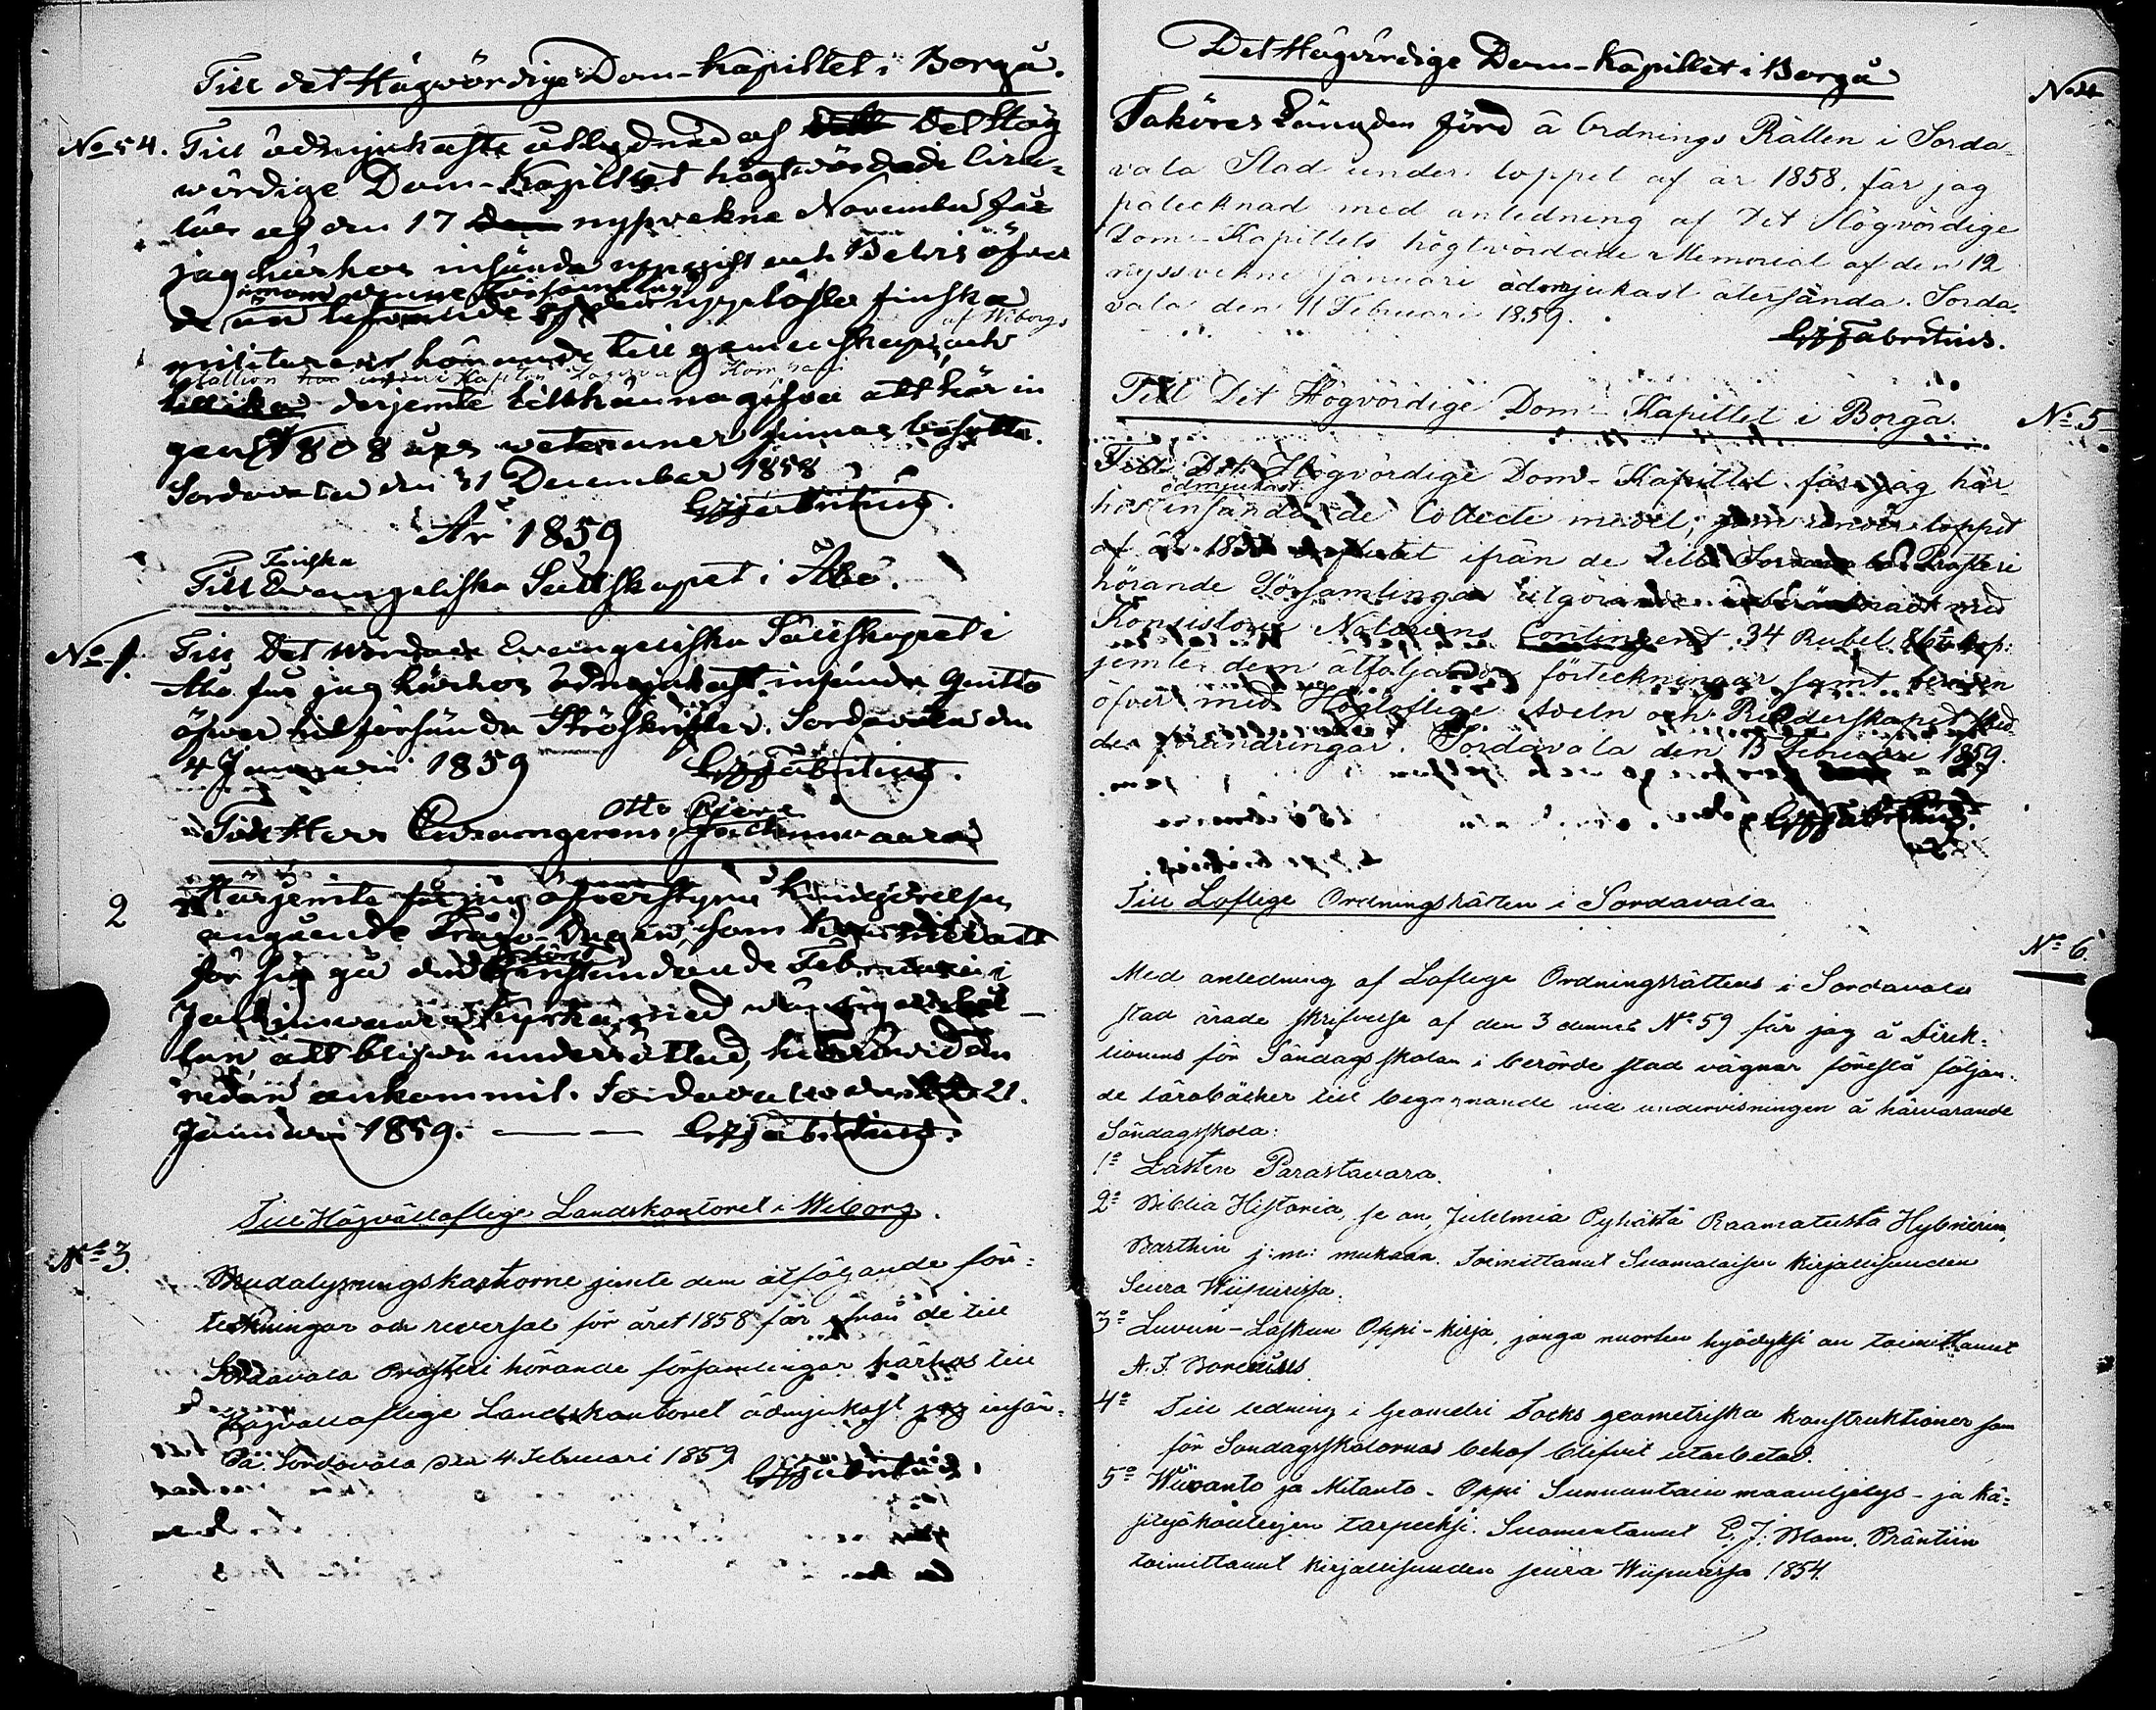 Till det Högvördige Dom-Kapitlet i Borgå.
No 54. Till ödmjukaste åtlydnad af det Hög
vördige Dom-Kapitlet högtvördade Circu-
lär af den 17 nyssvekne November får
jag härhos insända uppgift och Bevis öfver
inom denne Församling
de befintlige upplöste finska
af Wiborgs
militairens hörande till gemenskapen, och
Battlion Kapiten Kompani
derjemte tillkännagifva att här in
gen 1808 års veteraner finnas bosatte.
Sordavala den 31 December 1858
GJFabritius.
År 1859
Finska
Till Evangeliska Sällskapet i Åbo.
No 1. Till Det Wördade Evangeliska Sällskapet i
Åbo får jag härhos ödmjukast insända Qvitto
öfwer hit försända Ströskrifter. Sordavala den
4 Januari 1859 GJFabritius.
Otto Bjerve
Till Herr Conzamgerens Jackimvaara
2 Härjemte får jag öfverstyra Kungörelsen
angående som kommer att
för sig gå den förstundande Februari i
Jackimvaara Kyrka, med
lan, att blifva underrättad, huruvida den
redan ankommit. Sordavala den 21.
Januari 1859. — — GJFabritius.
Till Högvällofliga Landskontoret i Wiborg.
No 3. Mudalysningskartorne jemte dem åtföljande för-
teckningar och reversal för året 1858 får ifrån de till
Sordavala Prosteri hörande församlingar härhos till
Högvällofliga Landskontoret ödmjukast jag insän-
da. Sordavala den 4 Februari 1859. GJFabritius.
Det Högvördige Dom-Kapitlet i Borgå
No 4
Taköres Längden förd å Ordnings Rätten i Sorda-
vala Stad under loppet af år 1858, får jag
påtecknad med anledning af Det Högvördige
Dom-Kapitlets högtvördade Memorial af den 12
nyssvekne Januari ödmjukast återsända. Sorda-
vala den 11 Februari 1859.
GJFabritius.
Till Det Högvördige Dom-Kapitlet i Borgå.
No 5
Till Det Högvördige Dom-Kapitlet får jag här
ödmjukast
hos insända de Collecte medel, som under loppet
af år 1858 influtit ifrån de till Sordavala Prosteri
hörande Församlingar utgörande med
Konsistorie Notariens Contingent 34 Rubel 86 kop:
jemte dem åtföljande förteckningar samt bevisen
öfver med Högloflige Adeln och Ridderskapet sked-
de förändringar. Sordavala den 15 Februari 1859.
GJFabritius.
Till Loflige Ordningsrätten i Sordavala
No 6.
Med anledning af Loflige Ordningsrättens i Sordavala
stad ärade skrifvelse af den 3 dennes No 59 får jag å Direk-
tionens för Söndagsskolan i berörde stad vägnar föreslå följan-
de läroböcker till begagnande vid undervisningen å härvarande
Söndagsskola:
1o Lasten Parastavara.
2o Biblia Historia, se on, Juttelmia Pyhästä Raamatusta Hybnerin,
Barthin j:m: mukaan. Toimittanut Suomalaisen Kirjallisuuden
Seura Wiipurissa.
3o Luvun-Laskun Oppi-kirja, jonga nuorten hyödyksi on toimittanut
A. F. Borenius.
4o Till ledning i Geometri Focks geometriska konstruktioner som
för Söndagsskolornas behof blifvit utarbetad.
5o Wiivanto ja Mitanto-Oppi Sunnuntain maaviljelys- ja kä-
sityökoulujen tarpeeksi. Suomentanut E. J. Blom. Präntiin
toimittanut Kirjallisuuden seura Wiipurissa 1854.